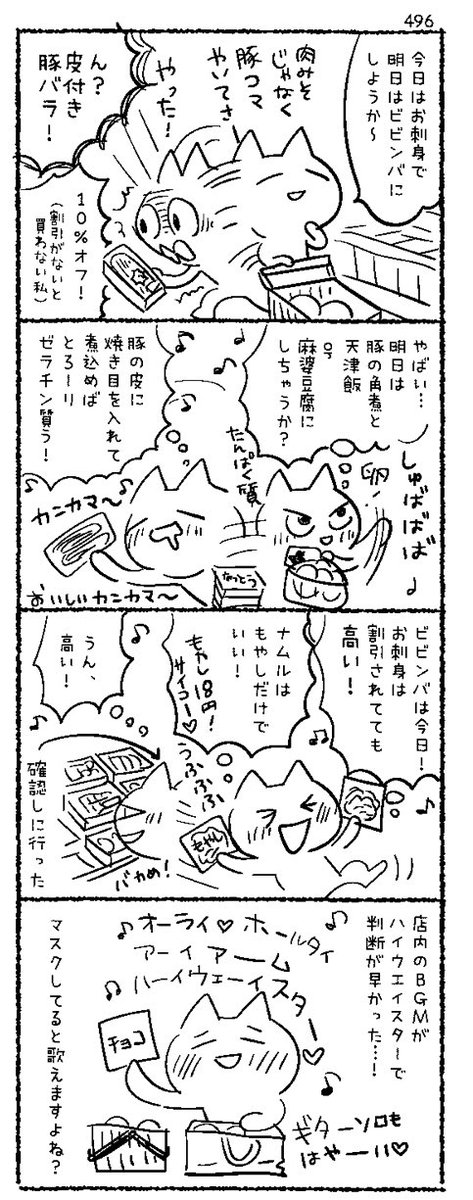 496
今日はお刺身で
明日はビビンバに
しようか〜
肉みそ
じゃなく
豚コマ
やいてさ
やった!
ん?
皮付き
豚バラ!
10%オフ!
(割引がないと
買わない私)
やばい…
明日は
豚の角煮と
天津飯
or
麻婆豆腐に
しちゃうか?
卵!
しゅばばばば
たんぱく質
なっとう
豚の皮に
焼き目を入れて
煮込めば
とろーり
ゼラチン質う!
カニカマ〜
おいしいカニカマ〜
ビビンバは今日!
お刺身は
割引されてても
高い!
ナムルは
もやしだけで
いい!
もやし18円!
サイコー♡
うふふふふ
もやし
バカめ!
うん、
高い!
確認しに行った
店内のBGMが
ハイウエイスターで
判断が早かった…!
♪オーライ♡ホールタイ
アーイアーム
ハーイウェーイスター♡
チョコ
ギターソロも
はやーい♡
マスクしてると歌えますよね?